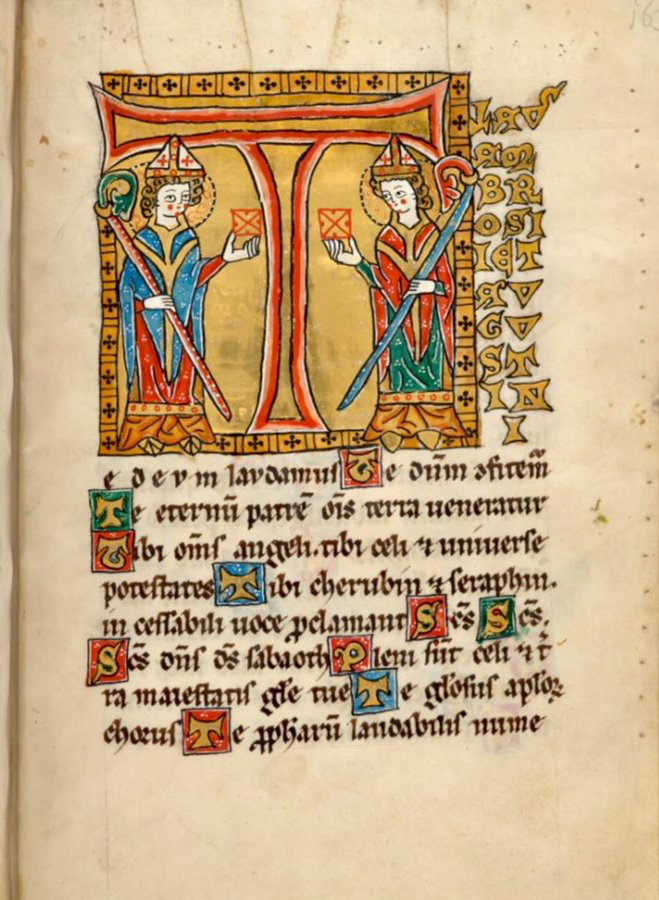 163
T
LAUS
AM
BR
OSI
I ET
AU
GU
ST
INI
I
e d e v m laudamus Te dūm ꝯfitem̄
Te eternū patrē oīs terra ueneratur
Tibi om̄s angeli. tibi celi ⁊ uniuerse
potestates Tibi cherubin ⁊ seraphin.
in cessabili uoce ꝓclamant Sc̄s Sc̄s.
Sc̄s dn̄s ds̄ sabaoth Pleni sūt celi ⁊ t̄
ra maiestatis gl̄e tue Te gl̄osus apl̄oꝝ
chorus Te ꝓph̄arū laudabilis nume